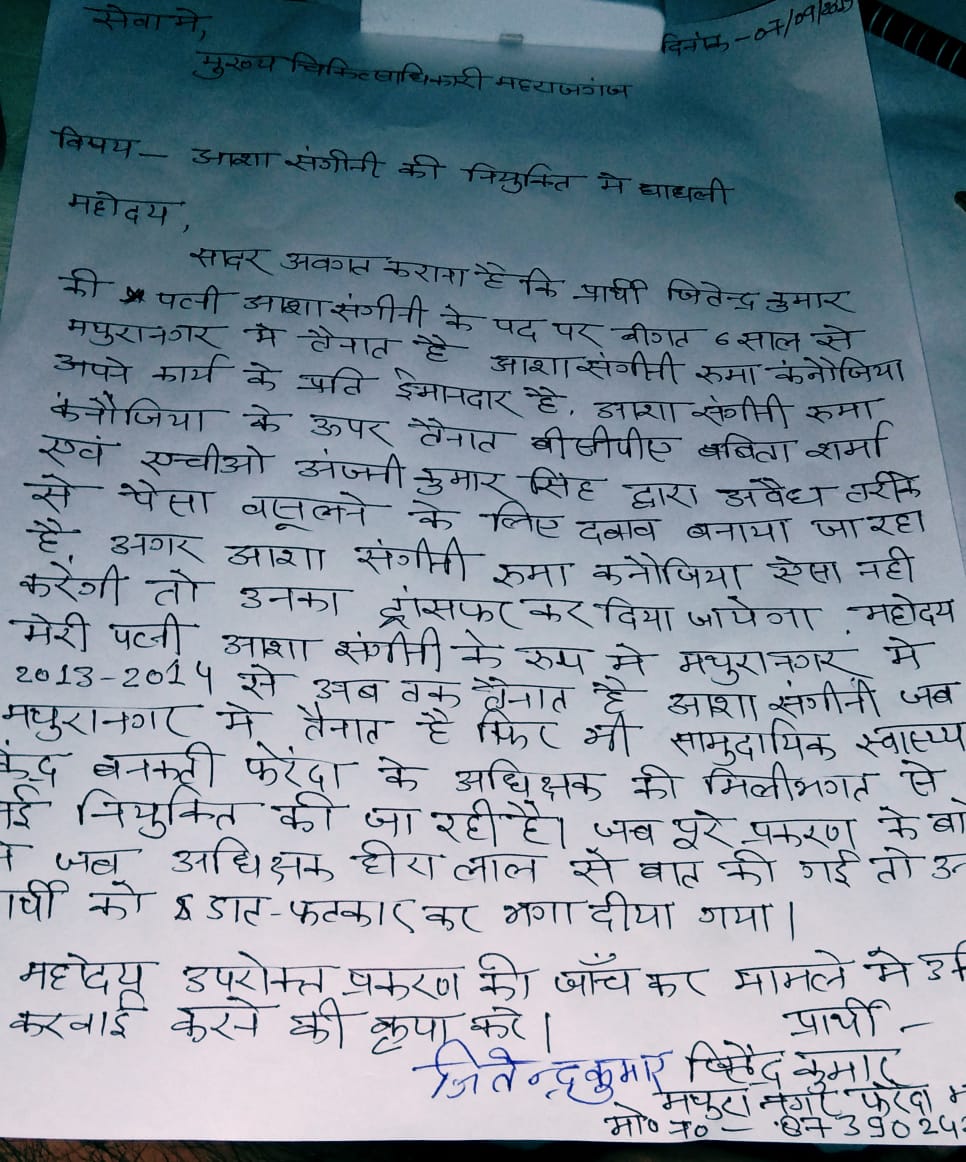 सेवा मे,
दिनांक - 07/09/20
मुख्य चिकित्साधिकारी महराजगंज
विषय - आशा संगीनी की नियुक्ति मे धाधली
महोदय,
सादर अवगत कराना है कि प्रार्थी जितेन्द्र कुमार
की पत्नी आशा संगीनी के पद पर बीगत 6 साल से
मथुरानगर मे तैनात है आशा संगीनी रुमा कंनौजिया
अपने कार्य के प्रति ईमानदार है. आशा संगीनी रुमा
कंनौजिया के ऊपर तैनात बीसीपीए बबिता शर्मा
एवं एचीओ अंजनी कुमार सिंह द्वारा अवैध तरीके
से पैसा वसूलने के लिए दबाव बनाया जा रहा
है. अगर आशा संगीनी रुमा कनौजिया ऐसा नही
करेंगी तो उनका ट्रांसफर कर दिया जायेगा. महोदय
मेरी पत्नी आशा संगीनी के रुप मे मथुरानगर मे
2013-2014 से अब तक तैनात है आशा संगीनी जब
मथुरानगर मे तैनात है फिर भी सामुदायिक स्वास्थ्य
केंद्र बनकटी फरेंदा के अधिक्षक की मिलीभगत से
नई नियुक्ति की जा रही है। जब पूरे प्रकरण के बा
मे जब अधिक्षक हीरा लाल से बात की गई तो उन
र्थी को डाट-फटकार कर भगा दीया गया।
महोदय उपरोक्त प्रकरण की जाँच कर मामले मे उ
करवाई करने की कृपा करे।
प्रार्थी -
जितेन्द्रकुमार जितेंद्र कुमार
मथुरा नगर फरेंदा म
मो० न० - 87390242